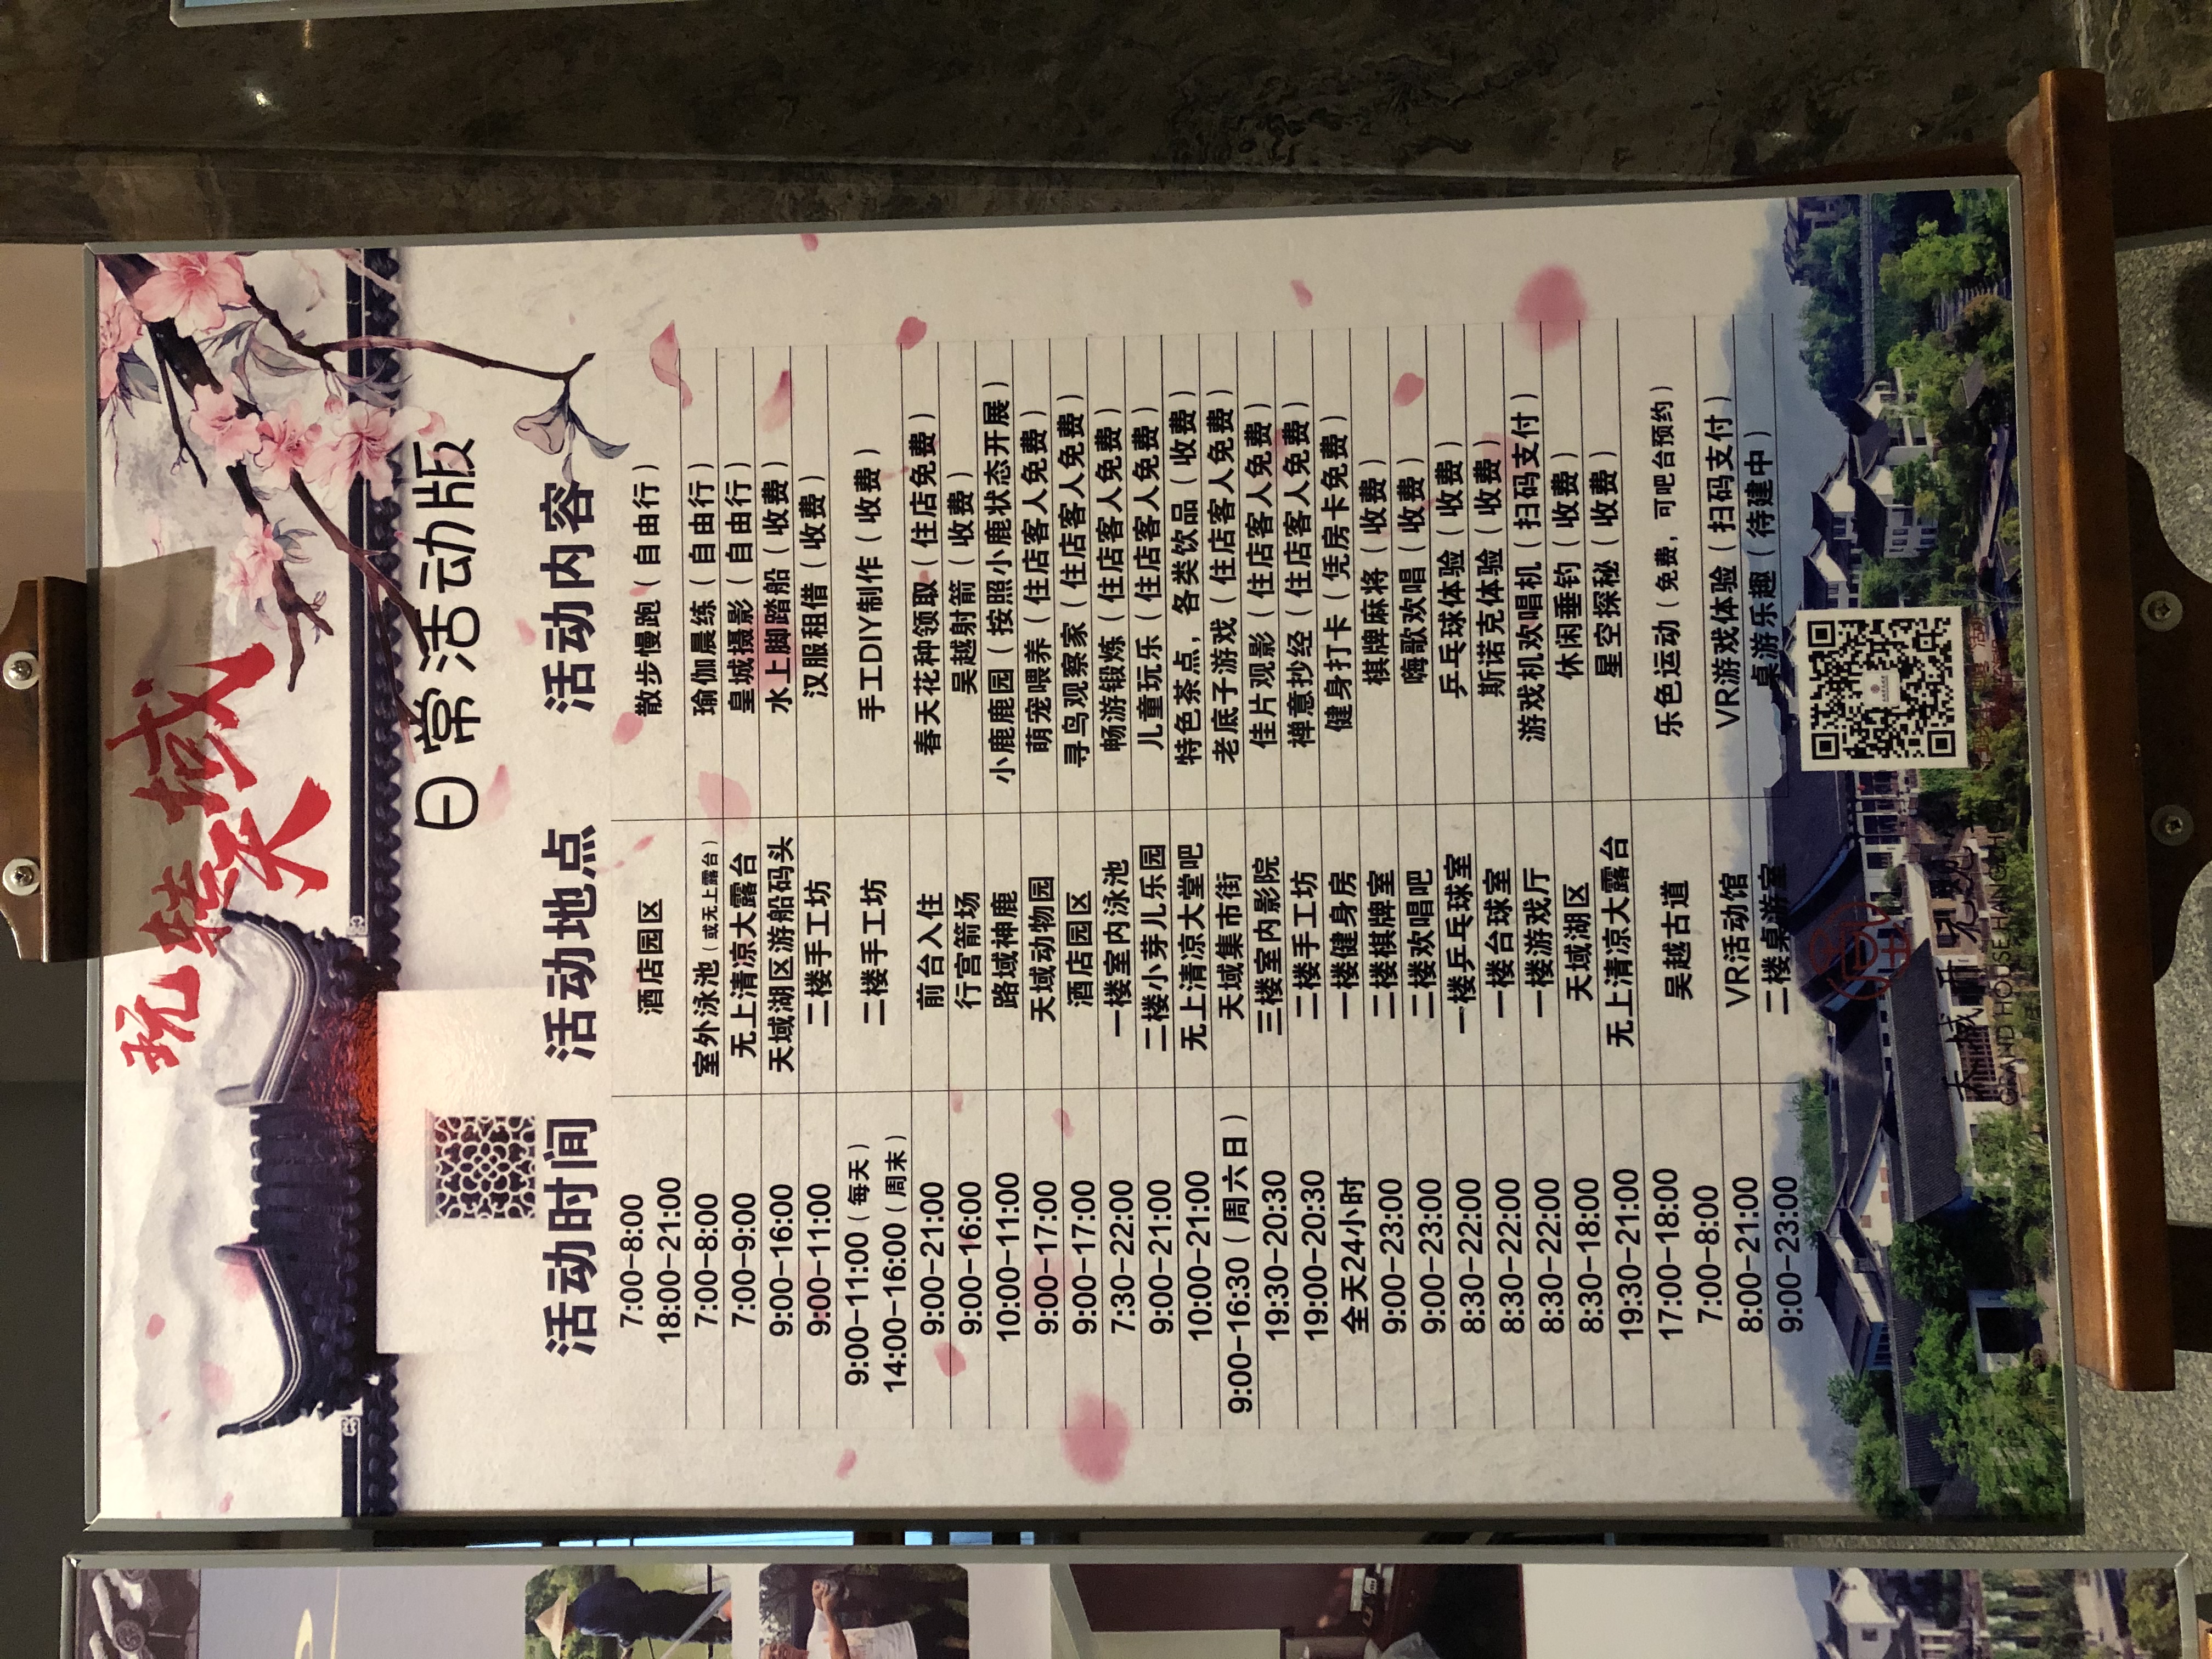 玩转天域
日常活动版
活动时间 活动地点 活动内容
7:00-8:00
18:00-21:00 酒店园区 散步慢跑（自由行）
7:00-8:00 室外泳池（或无上露台） 瑜伽晨练（自由行）
7:00-9:00 无上清凉大露台 皇城摄影（自由行）
9:00-16:00 天域湖区游船码头 水上脚踏船（收费）
9:00-11:00 二楼手工坊 汉服租借（收费）
9:00-11:00（每天）
14:00-16:00（周末） 二楼手工坊 手工DIY制作（收费）
9:00-21:00 前台入住 春天花种领取（住店免费）
9:00-16:00 行宫箭场 吴越射箭（收费）
10:00-11:00 路域神鹿 小鹿鹿园（按照小鹿状态开展）
9:00-17:00 天域动物园 萌宠喂养（住店客人免费）
9:00-17:00 酒店园区 寻鸟观察家（住店客人免费）
7:30-22:00 一楼室内泳池 畅游锻炼（住店客人免费）
9:00-21:00 二楼小芽儿乐园 儿童玩乐（住店客人免费）
10:00-21:00 无上清凉大堂吧 特色茶点，各类饮品（收费）
9:00-16:30（周六日） 天域集市街 老底子游戏（住店客人免费）
19:30-20:30 三楼室内影院 佳片观影（住店客人免费）
19:00-20:30 二楼手工坊 禅意抄经（住店客人免费）
全天24小时 一楼健身房 健身打卡（凭房卡免费）
9:00-23:00 二楼棋牌室 棋牌麻将（收费）
9:00-23:00 二楼欢唱吧 嗨歌欢唱（收费）
8:30-22:00 一楼乒乓球室 乒乓球体验（收费）
8:30-22:00 一楼台球室 斯诺克体验（收费）
8:30-22:00 一楼游戏厅 游戏机欢唱机（扫码支付）
8:30-18:00 天域湖区 休闲垂钓（收费）
19:30-21:00 无上清凉大露台 星空探秘（收费）
17:00-18:00
7:00-8:00 吴越古道 乐色运动（免费，可吧台预约）
8:00-21:00 VR活动馆 VR游戏体验（扫码支付）
9:00-23:00 二楼桌游室 桌游乐趣（待建中）
天域开元观堂
GRAND HOUSE HANGZHOU